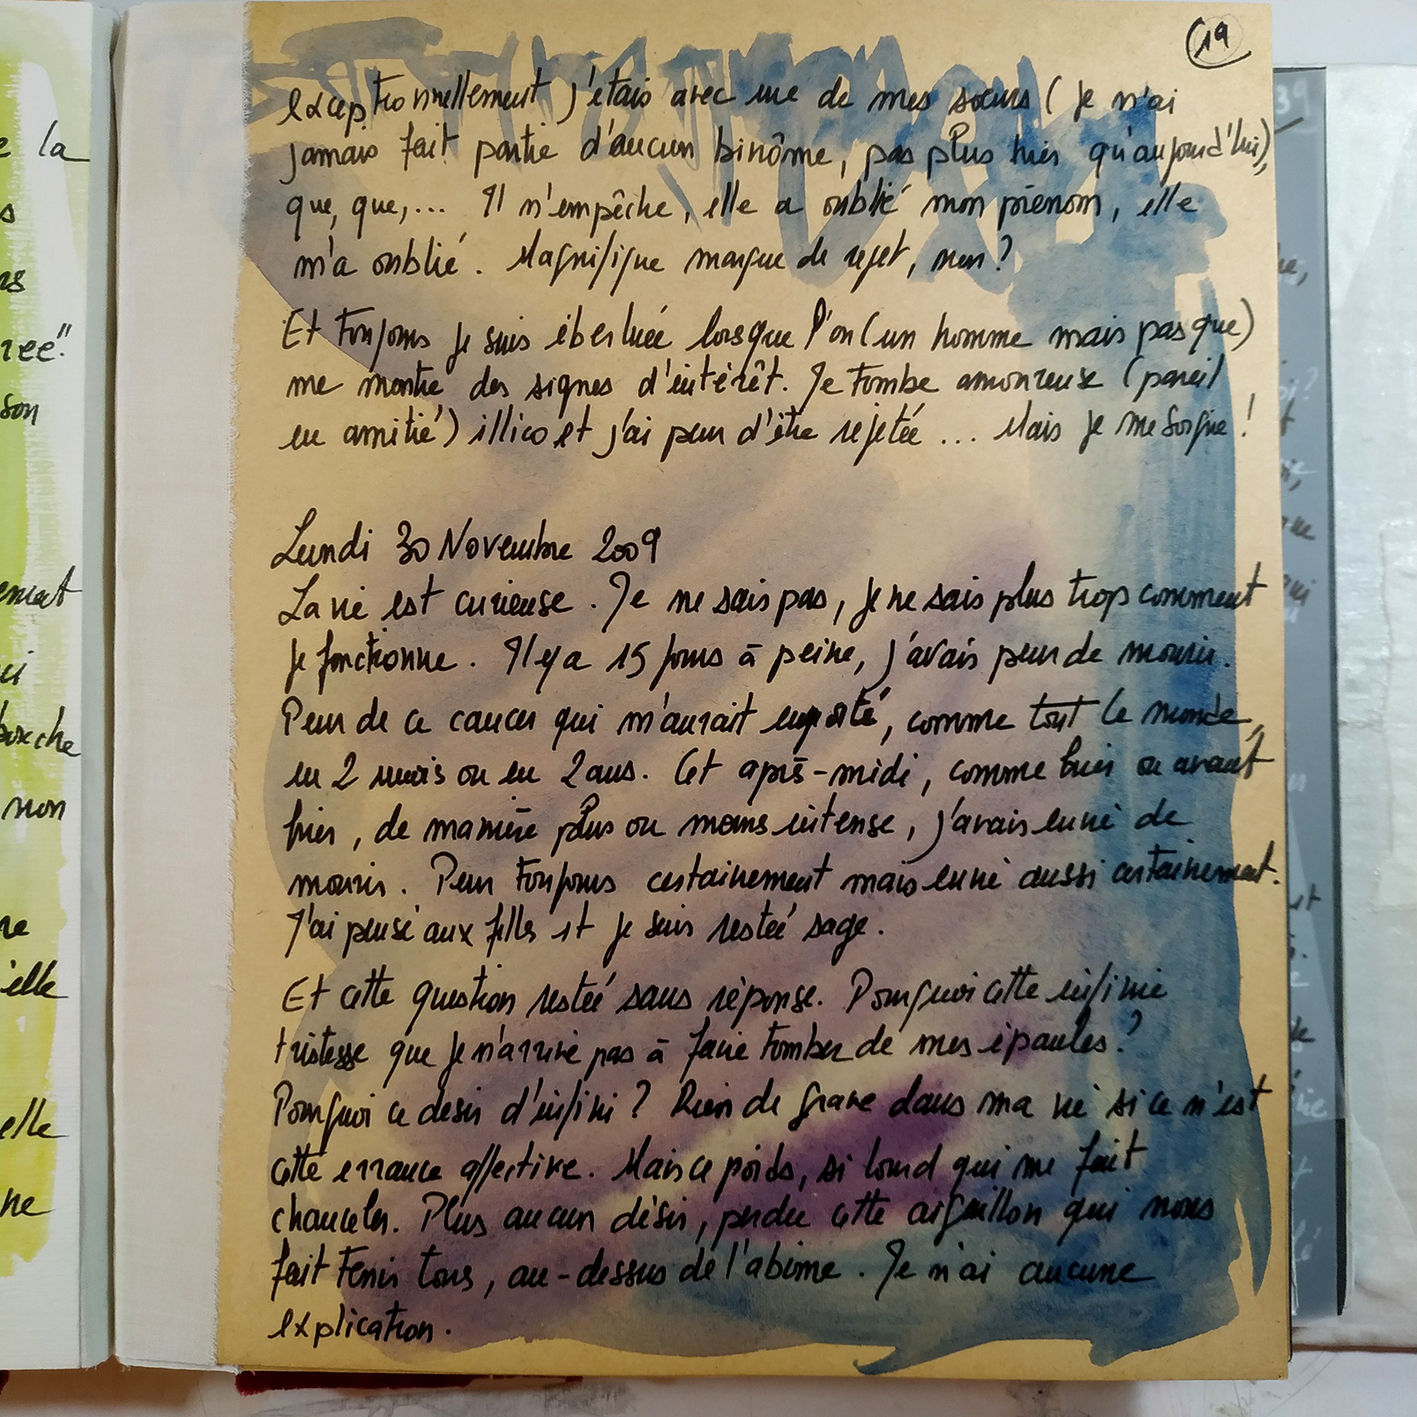 19
exceptionnellement j'étais avec une de mes sœurs (je n'ai
jamais fait partie d'aucun binôme, pas plus hier qu'aujourd'hui),
que, que,... Il n'empêche, elle a oublié mon prénom, elle
m'a oublié. Magnifique marque de rejet, non?
Et toujours je suis éberluée lorsque l'on (un homme mais pas que)
me montre des signes d'intérêt. Je tombe amoureuse (pareil
en amitié) illico et j'ai peur d'être rejetée ... Mais je me soigne!
Lundi 30 Novembre 2009
La vie est curieuse. Je ne sais pas, je ne sais plus trop comment
je fonctionne. Il y a 15 jours à peine, j'avais peur de mourir.
Peur de ce cancer qui m'aurait emporté, comme tout le monde,
en 2 mois ou en 2 ans. Cet après-midi, comme hier ou avant
hier, de manière plus ou moins intense, j'avais envie de
mourir. Peur toujours certainement mais envie aussi certainement.
J'ai pensé aux filles et je suis restée sage.
Et cette question restée sans réponse. Pourquoi cette infinie
tristesse que je n'arrive pas à faire tomber de mes épaules?
Pourquoi ce desir d'infini? Rien de grave dans ma vie si ce n'est
cette errance affective. Mais ce poids, si lourd qui me fait
chanceler. Plus aucun désir, perdu cette aiguillon qui nous
fait tenir tous, au-dessus de l'abime. Je n'ai aucune
explication.
e la
s
rs
rée".
son
ement
ui
bouche
non
re
elle
elle
ne
39